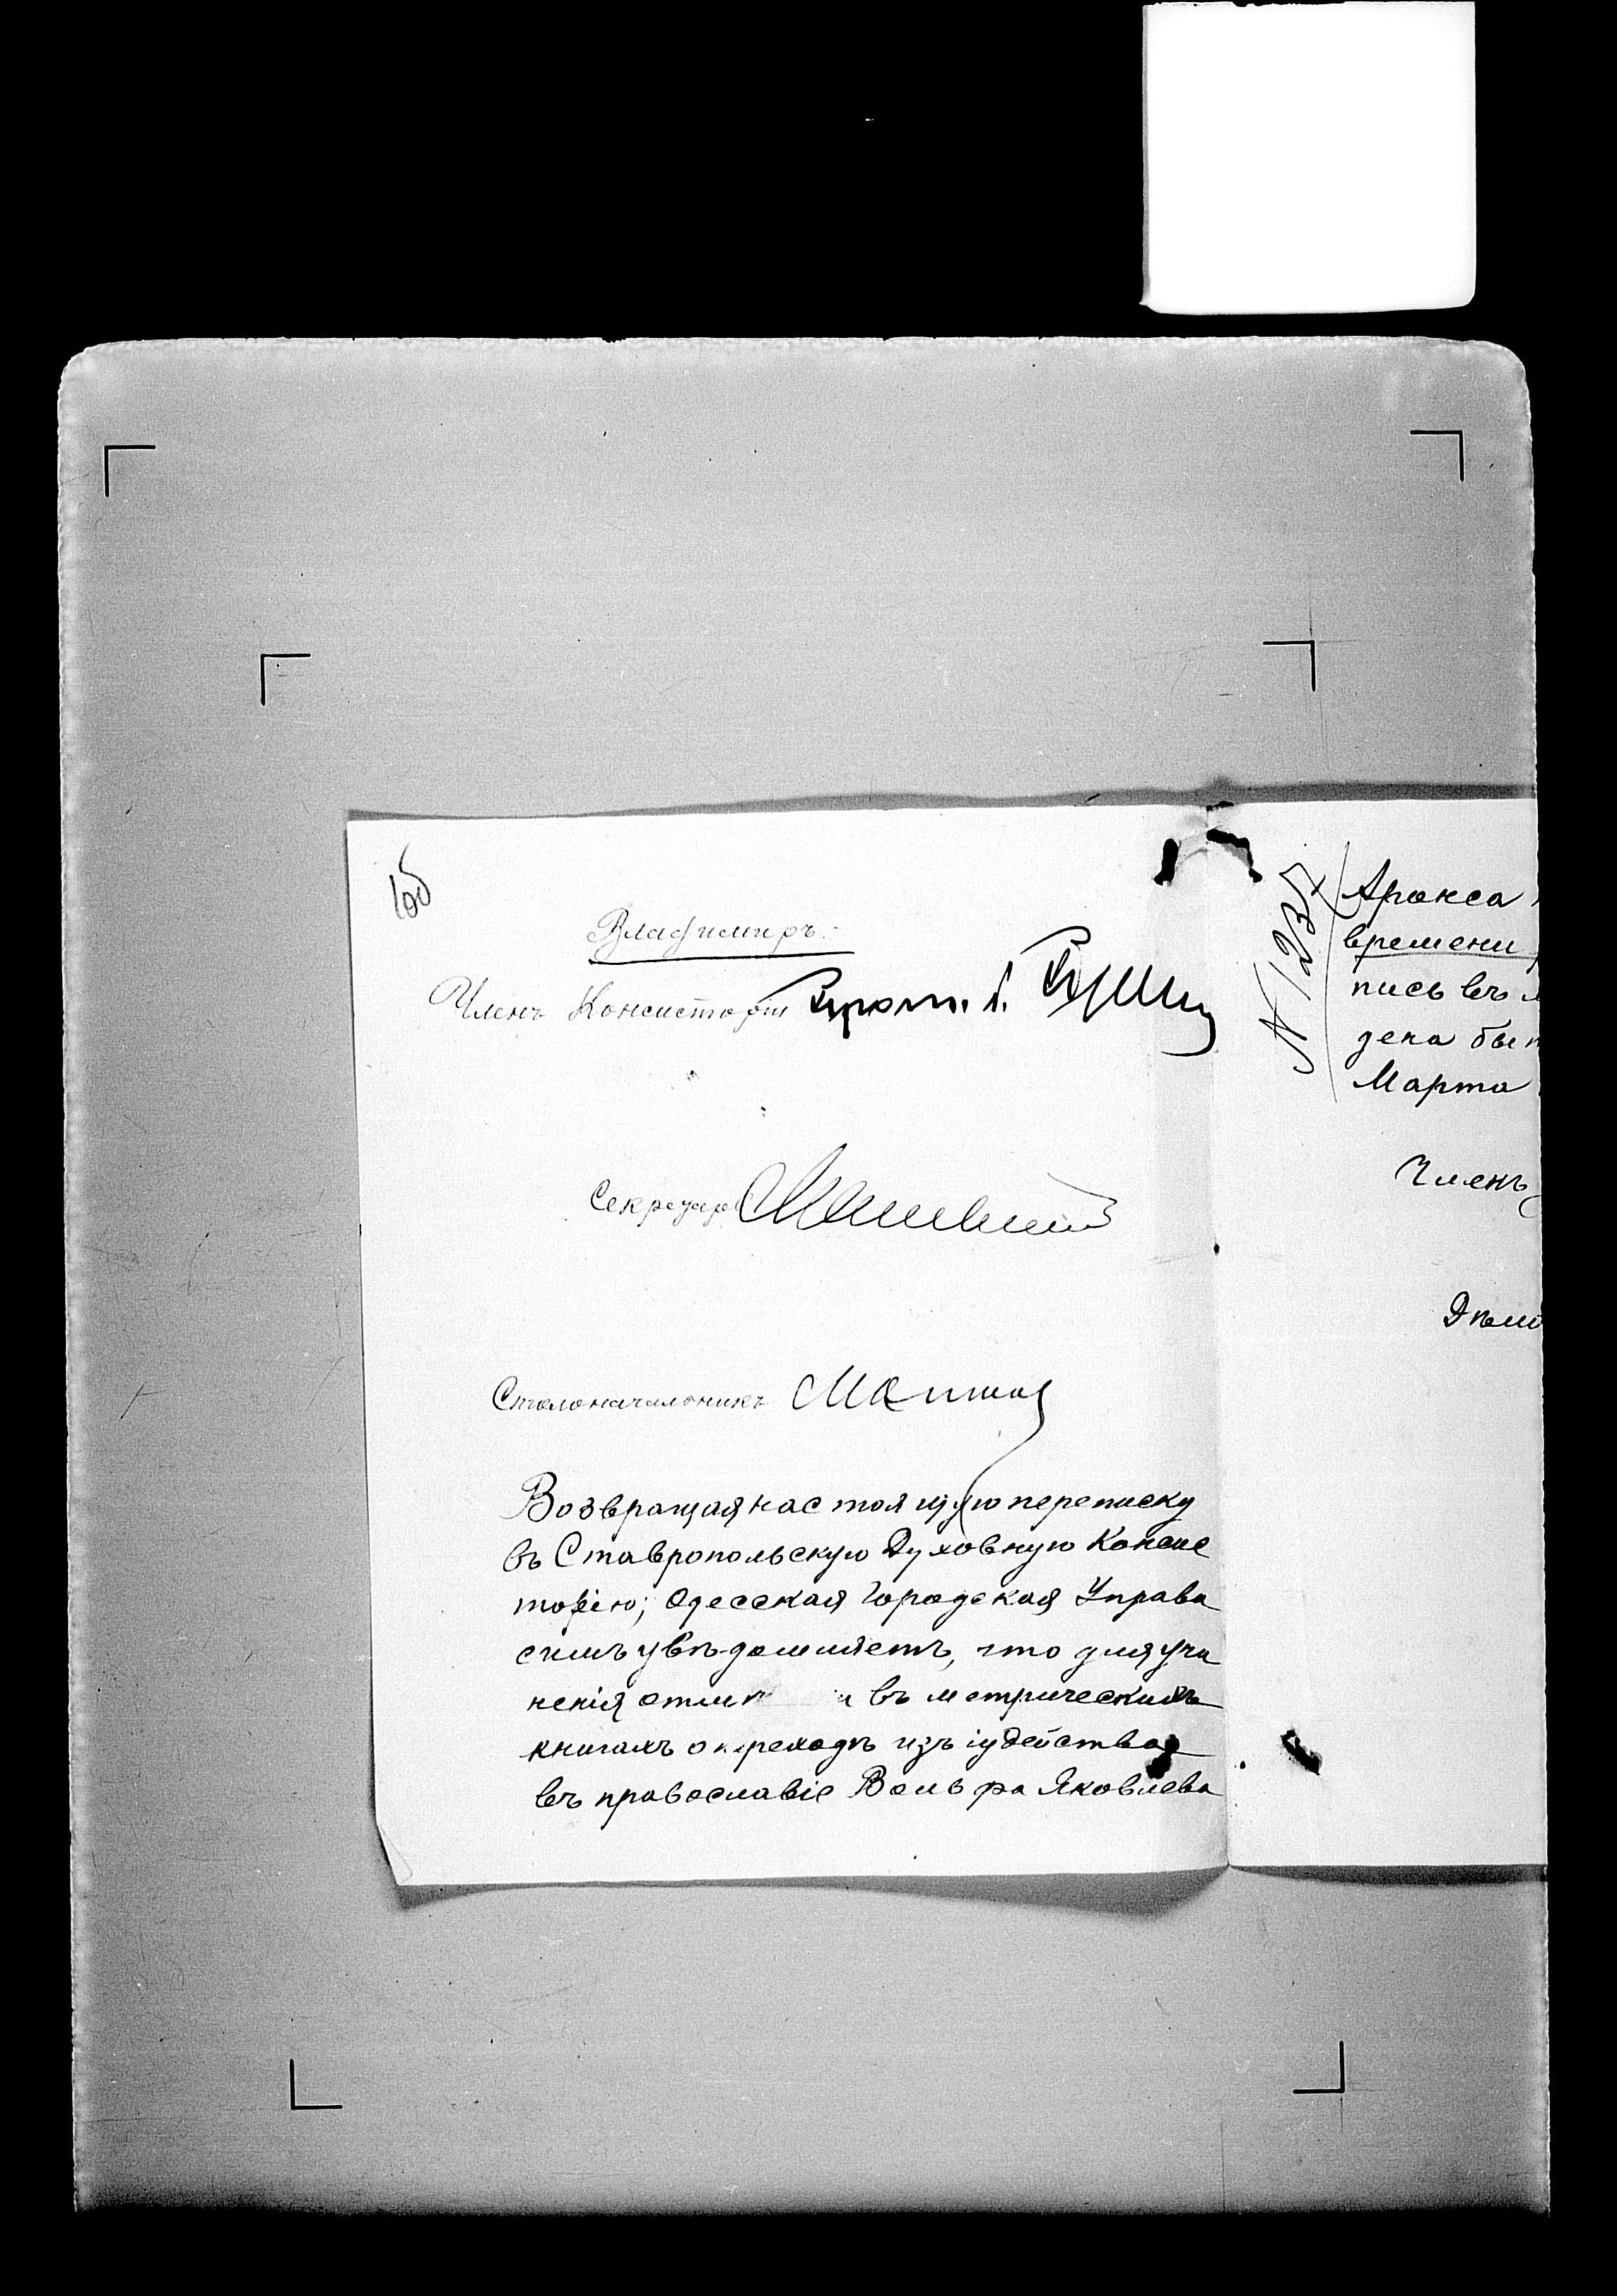 Владимиръ.
Членъ Консисторіи Прот.
Секретарь
Столоначальникъ
Возвращая настоящую переписку
въ Ставропольскую Духовную Консис
торію; Одесская Городская Управа
симъ увѣдомляетъ, что для учи
ненія отм и въ метрическихъ
книгахъ о переходѣ изъ іудейства
въ православіе Вольфа Яковлева
№ 1237
Аракса
времени
пись въ
дена быт
Марта
Членъ
Дѣло